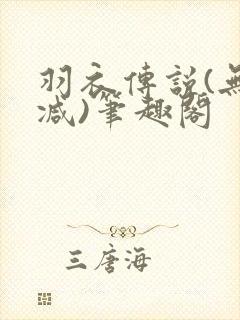 羽衣傳說(無
減)筆趣閣
三唐海